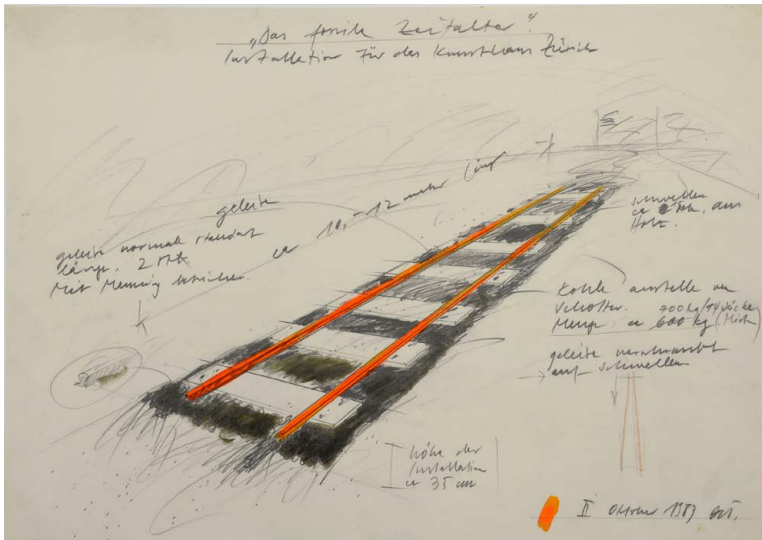 "Das fossile Zeitalter".
Installation für das Kunsthaus Zürich
geleise
ca 10 - 12 meter lang
geleise normale standart
länge. 2 stk
Mit Mennig bestrichen
schwellen
ca stk. aus
Holz.
Kohle anstelle von
Schotter. 700 kg/14 säcke
Menge ca 600 kg
geleise verschraubt
auf schwellen
höhe der
Installation
ca 35 cm
II Oktober 1989